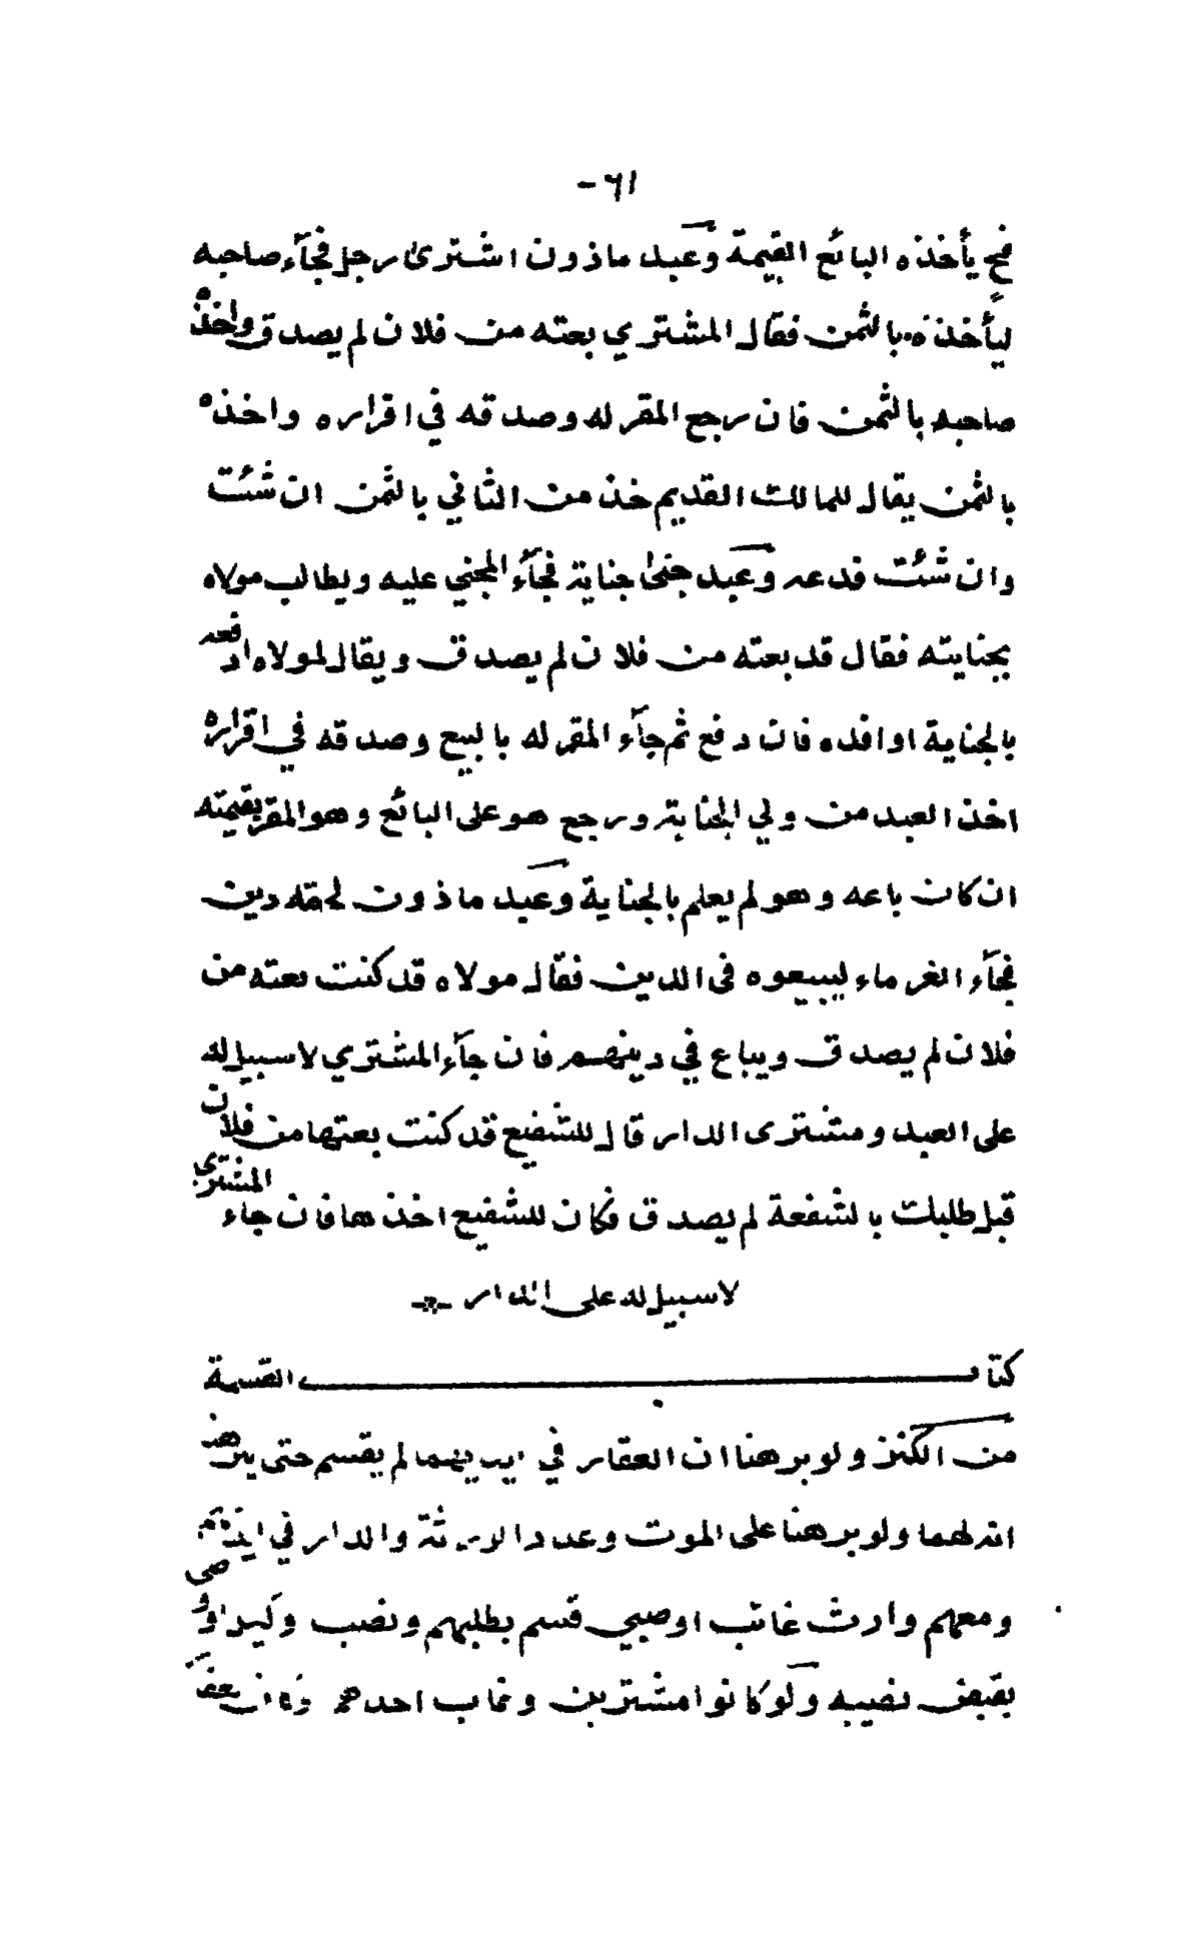 ٦١-
فح يأخذه البائع القيمة وعبد ماذون اشترى رجل فجآء صاحبه
ليأخذه بالثمن فقال المشتري بعته من فلان لم يصدق واخذه
صاحبه بالثمن فان رجع المقر له وصدقه في اقراره واخذه
بالثمن يقال للمالك القديم خذ من الثاني بالثمن ان شئت
وان شئت فدعه وعبد جنى جناية فجآء المجني عليه ويطالب مولاه
بجنايته فقال قد بعته من فلان لم يصدق ويقال لمولاه ادفعه
بالجناية اوافده فان دفع ثم جآء المقر له بالبيع وصدقه في اقراره
اخذ العبد من ولي الجناية ورجع هو على البائع وهو المقر بقيمته
ان كان باعه وهو لم يعلم بالجناية وعبد ماذون لحقه دين
فجآء الغرماء ليبيعوه فى الدين فقال مولاه قد كنت بعته من
فلان لم يصدق ويباع في دينهم فان جآء المشتري لا سبيل له
على العبد ومشترى الدار قال للشفيع قد كنت بعتها من فلان
قبل طلبك بالشفعة لم يصدق فكان للشفيع اخذها فان جاء المشتري
لا سبيل له على الدار
كتاب القسمة
من الكنز ولو برهنا ان العقار في ايديهما لم يقسم حتى يبرهنا
انه لهما ولو برهنا على الموت وعدد الورثة والدار في ايديهم
ومعهم وارث غائب اوصبي قسم بطلبهم ونصب وكيل او وصى
بقبض نصيبه ولو كانوا مشترين وغاب احدهم